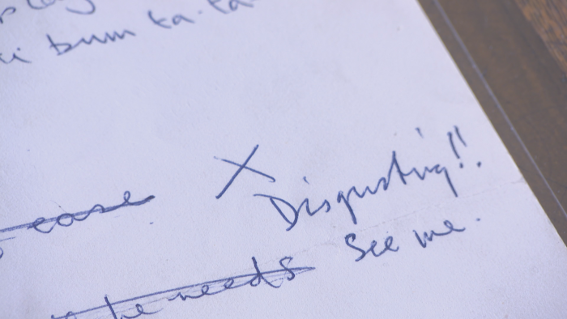 bum ta. ta.
ease X Disgusting!!
he needs See me.